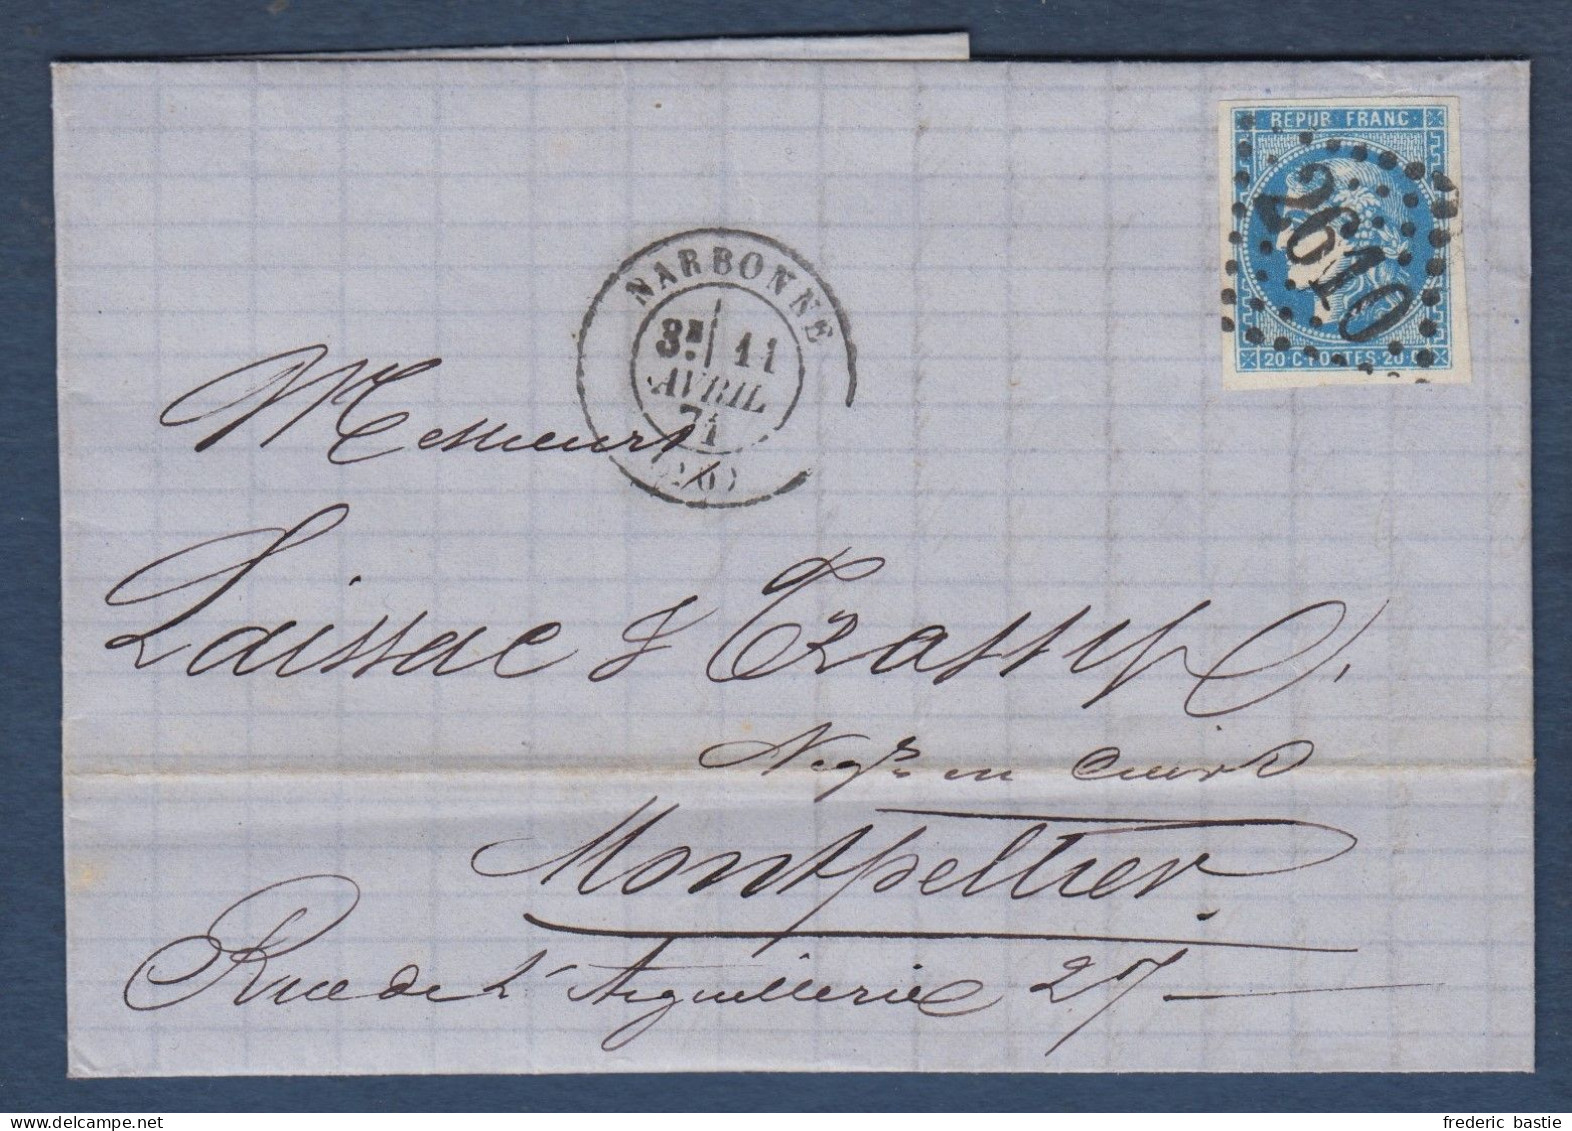 REPUB FRANC
2610
20 C POSTES 20 C
NARBONNE
3E 11
AVRIL
71
Messieurs
Laissac & Trassy
Negts en cuirs
Montpellier.
Rue de L'Aiguillerie 27
delcampe.net
frederic bastie